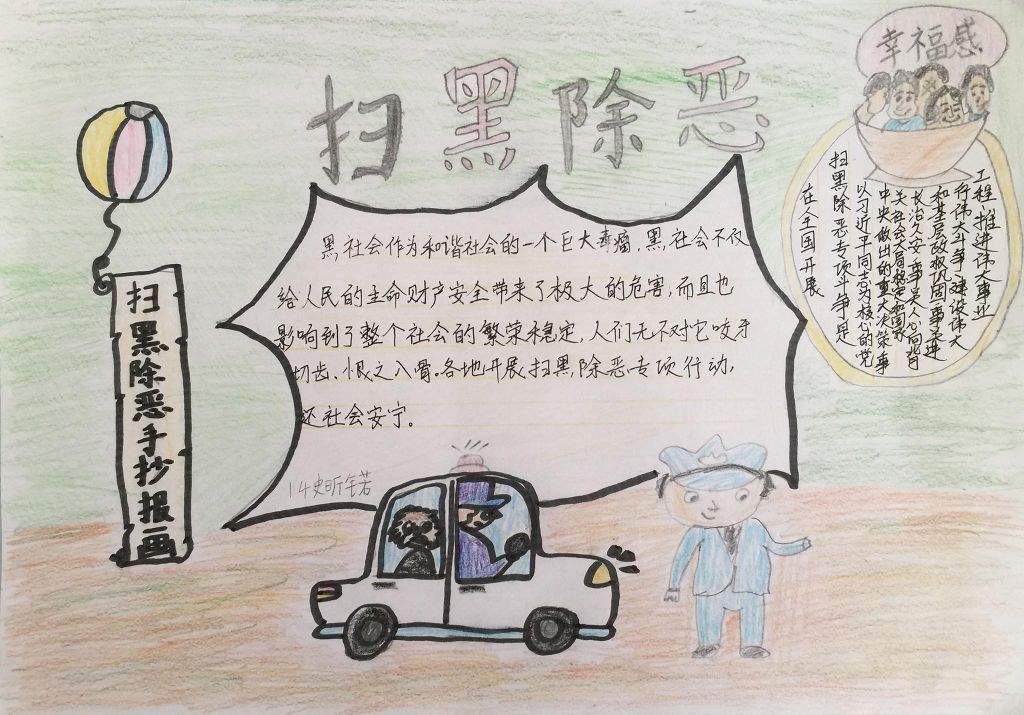 扫黑除恶
幸福感
黑社会作为和谐社会的一个巨大毒瘤，黑社会不仅
给人民的生命财产安全带来了极大的危害，而且也
影响到了整个社会的繁荣稳定，人们无不对它咬牙
切齿、恨之入骨。各地开展扫黑除恶专项行动，
还社会安宁。
14史昕
扫黑除恶手抄报画
在全国开展
扫黑除恶专项斗争是
以习近平同志为核心的党
中央做出的重大决策事
关社会大局稳定和国家
长治久安事关人心向背
和基层政权巩固事关进
行伟大斗争建设伟大
工程，推进伟大事业